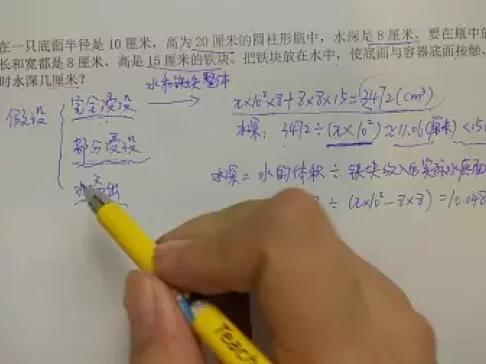 在一只底面半径是 10 厘米，高为 20 厘米的圆柱形瓶中，水深是 8 厘米，要在瓶中放
长和宽都是 8 厘米，高是 15 厘米的铁块。把铁块放在水中，使底面与容器底面接触，
时水深几厘米？
水和铁块整体
假设
完全浸没
π×10²×8+8×8×15=3472(cm³)
水深：3472÷(π×10²)≈11.06(厘米)<15
部分浸没
水深=水的体积÷铁块放入后实际水底面
水
÷(π×10²-8×8)=10.048
Teach